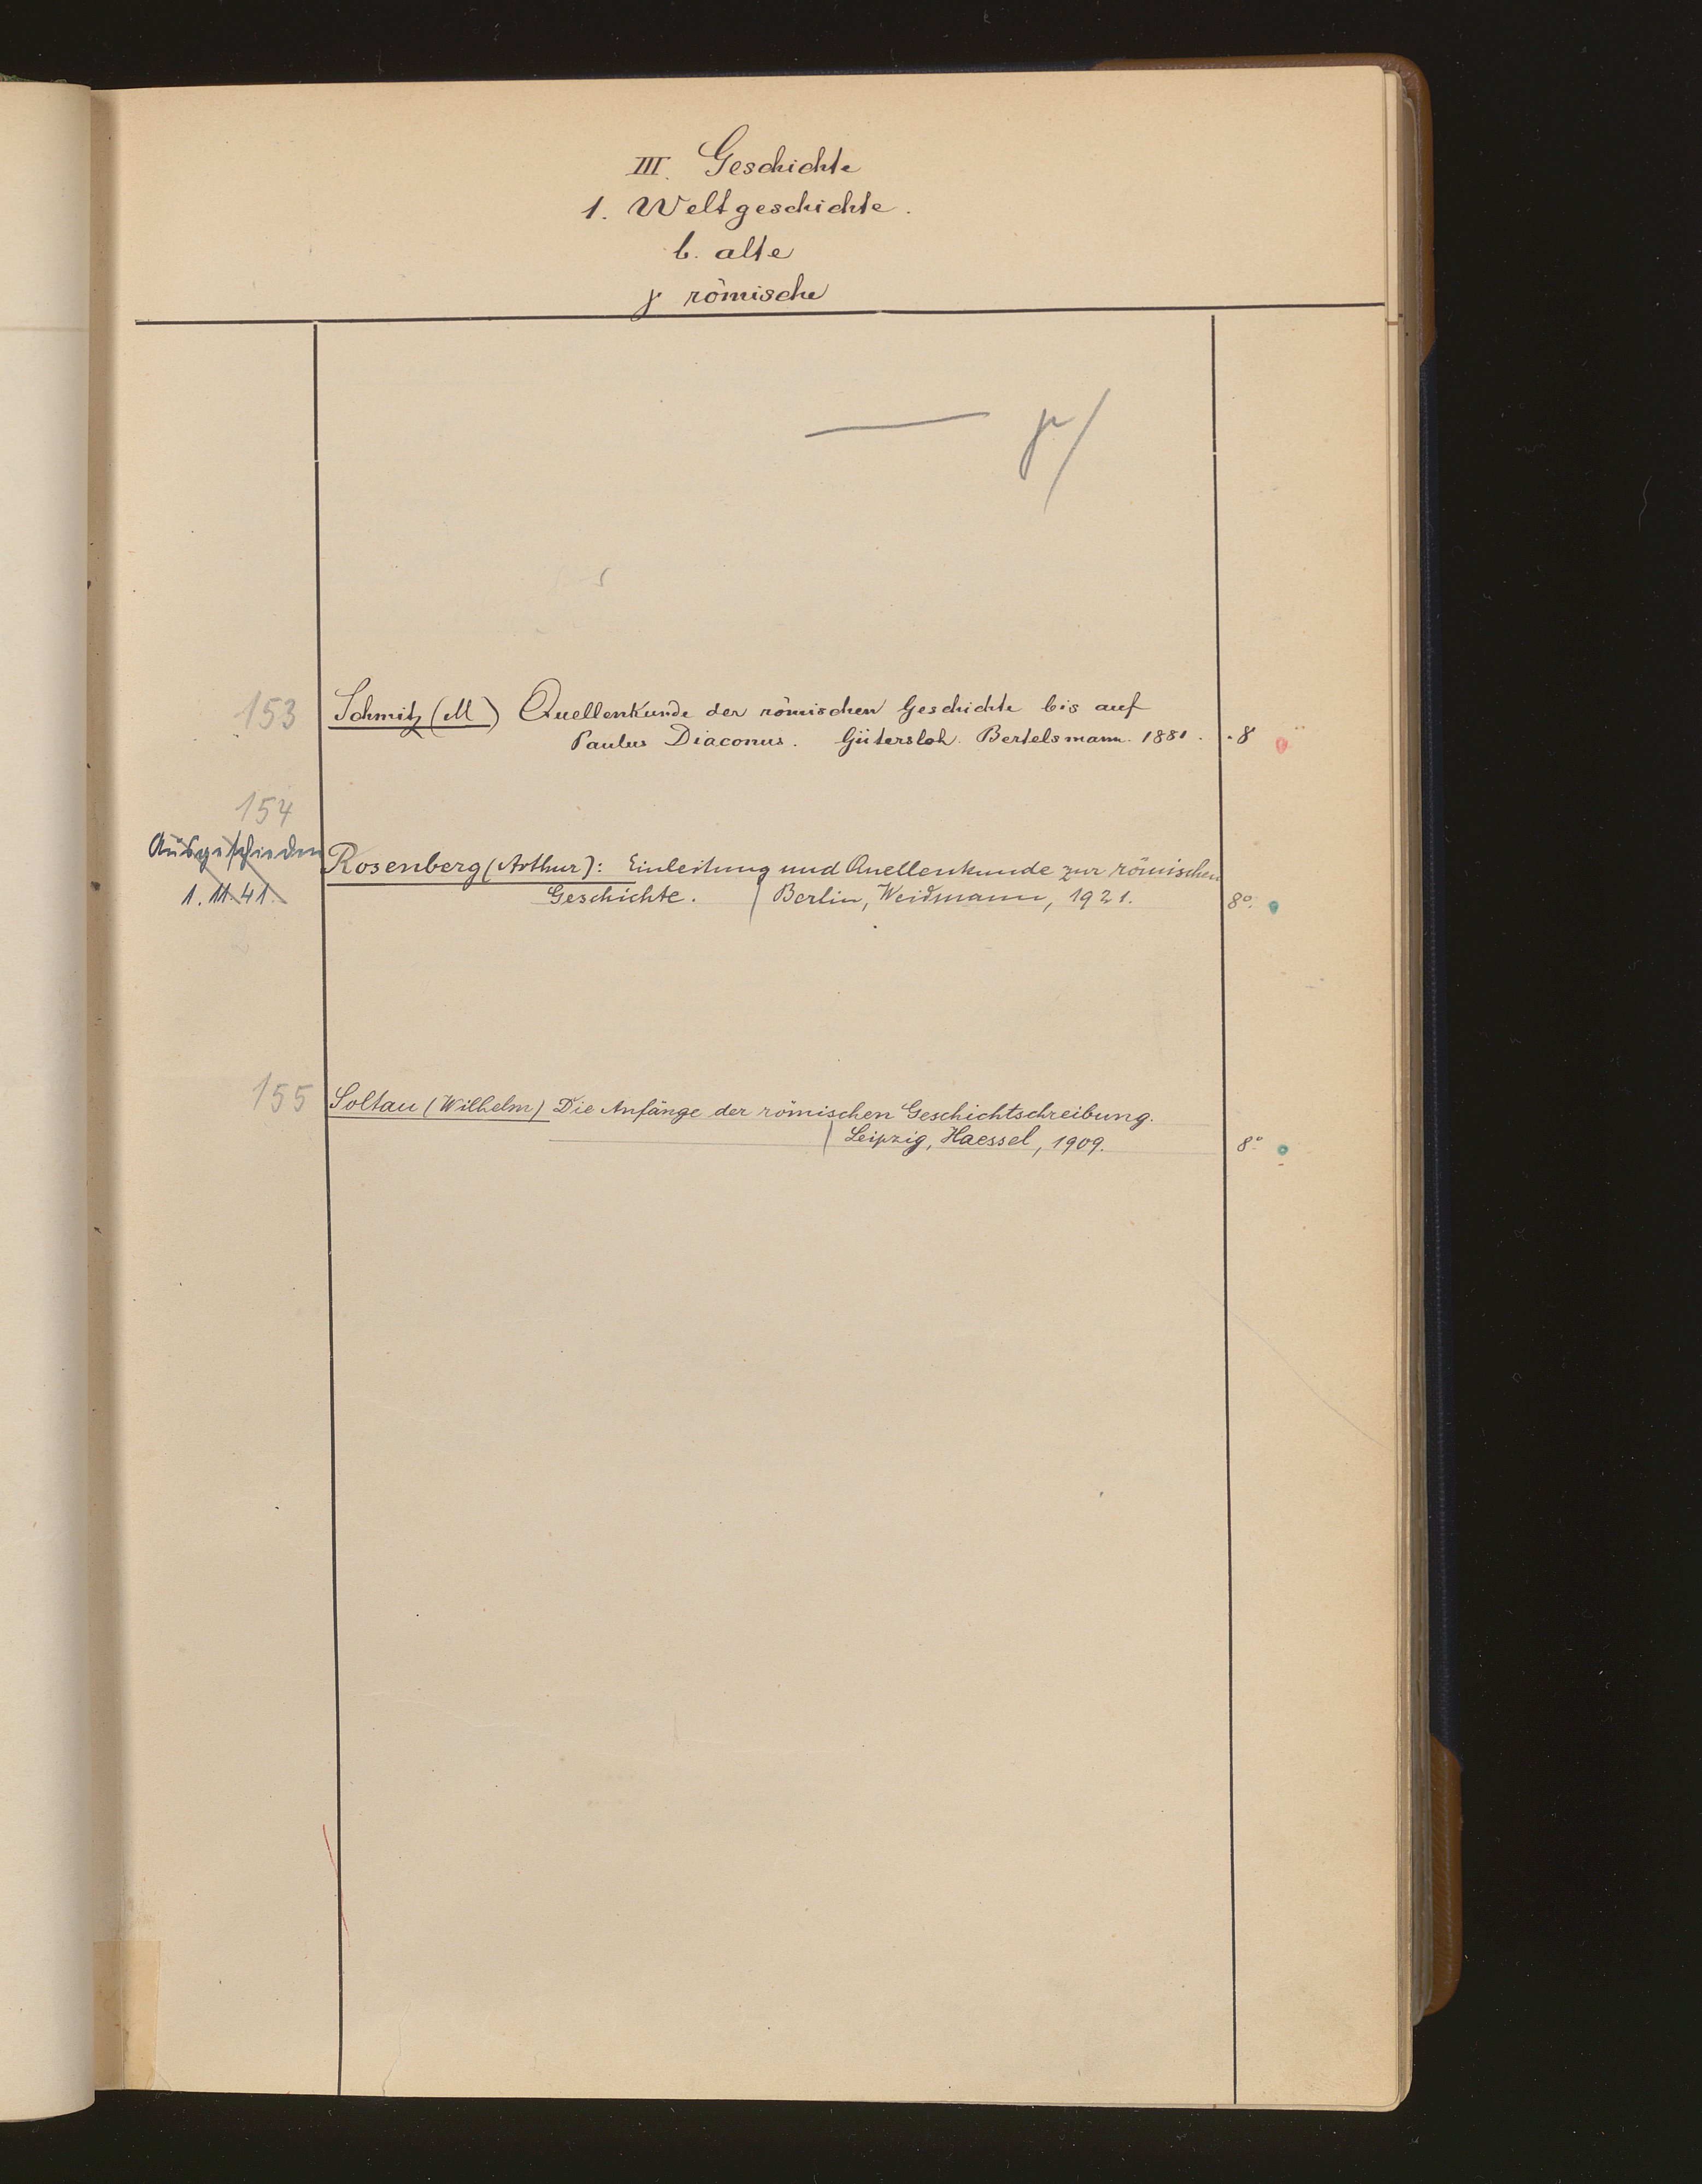 III. Geschichte
1. Weltgeschichte.
b. alte
γ römische
153 Schmitz (M) Quellenkunde der römischen Geschichte bis auf
Paulus Diaconus. Gütersloh. Bertelsmann. 1881. 8
154
Ausgeschieden
1. 11. 41.
Rosenberg (Arthur): Einleitung und Quellenkunde zur römischen
Geschichte. / Berlin, Weidmann, 1921. 8°.
155 Soltau (Wilhelm) Die Anfänge der römischen Geschichtschreibung.
/ Leipzig, Haessel, 1909. 8°